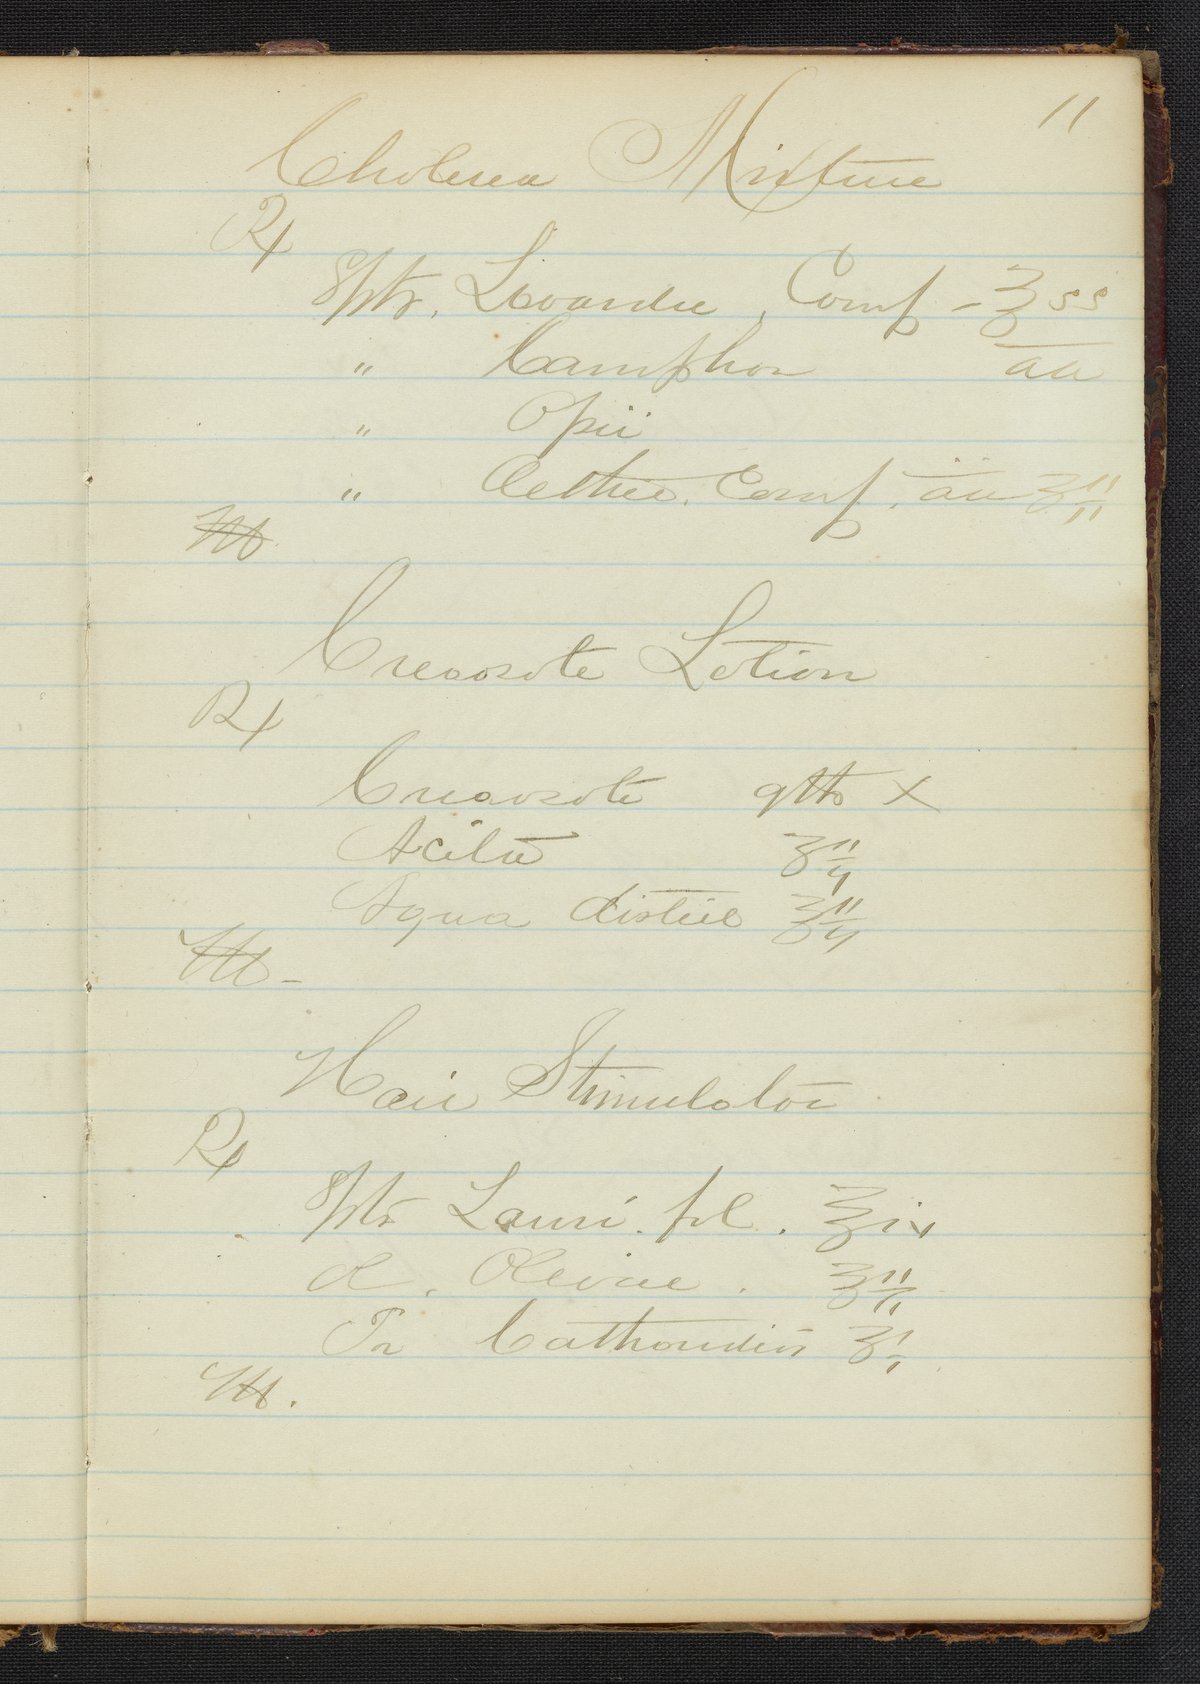 11
Cholera Mixture
Rx
Spts. Lavandu. Comp - ℥ss
" Camphor āā
" Opii
" Aetheris. Comp. āā ʒii
M
Creaosote Lotion
Rx
Creaosote gtts X
Acitu ʒii
Aqua distill ℥ii
M -
Hair Stimulator
Rx
Spts Lauri. fol. ℥iv
Ol. Olivae. ℥ii
Tr Catharidis ʒi
M.